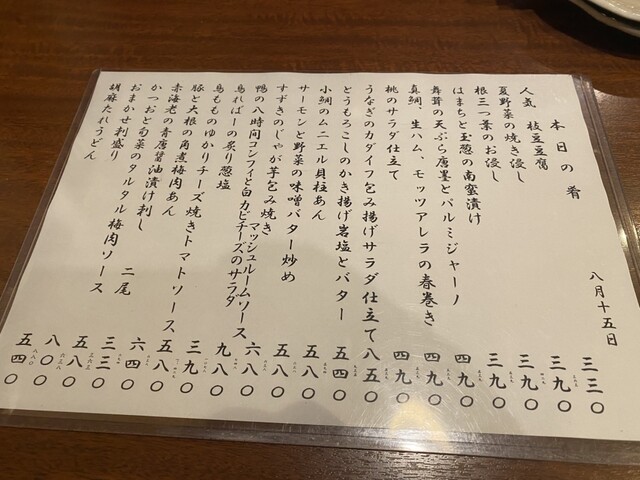 本日の肴　八月十五日
人気　枝豆豆腐　三三〇
夏野菜の焼き浸し　三九〇
根三つ葉のお浸し　三九〇
はまちと玉葱の南蛮漬け　三九〇
舞茸の天ぷら唐墨とパルミジャーノ　四九〇
真鯛、生ハム、モッツアレラの春巻き　四九〇
桃のサラダ仕立て　四九〇
うなぎのカダイフ包み揚げサラダ仕立て　八五〇
とうもろこしのかき揚げ岩塩とバター　五四〇
小鯛のムニエル貝柱あん　五八〇
サーモンと野菜の味噌バター炒め　五八〇
すずきのじゃが芋包み焼きマッシュルームソース　六八〇
鴨の八時間コンフィと白カビチーズのサラダ　九八〇
鳥ればーの炙り葱塩　三九〇
鳥もものゆかりチーズ焼きトマトソース　五八〇
豚と大根の角煮梅肉あん　六四〇
赤海老の青唐醤油漬け刺し　二尾　三三〇
かつおと旬菜のタルタル梅肉ソース　五八〇
おまかせ刺盛り　八〇〇
胡麻だれうどん　五四〇